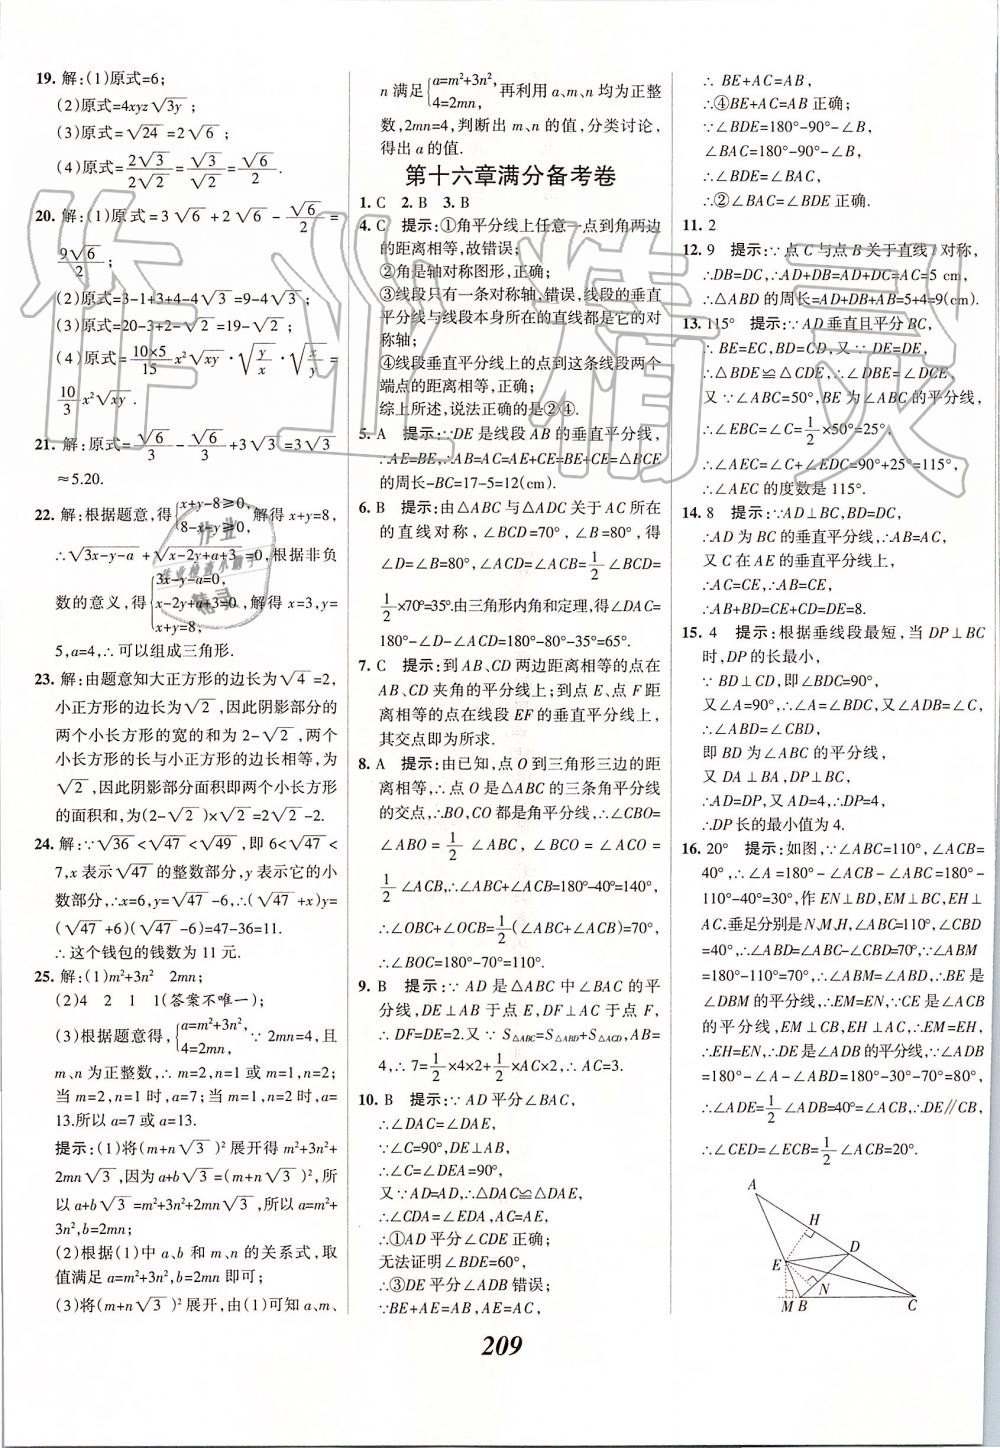 19. 解:(1)原式=6;
(2)原式=4xyz√3y;
(3)原式=√24=2√6;
(4)原式=2√3/2√2=√3/√2=√6/2.
20. 解:(1)原式=3√6+2√6-√6/2=
9√6/2;
(2)原式=3-1+3+4-4√3=9-4√3;
(3)原式=20-3+2-√2=19-√2;
(4)原式=10×5/15 x²√xy·√(y/x)·√(x/y)=
10/3 x²√xy.
21. 解:原式=√6/3-√6/3+3√3=3√3
≈5.20.
22. 解:根据题意,得{x+y-8≥0, 8-x-y≥0,解得x+y=8,
∴√3x-y-a+√x-2y+a+3=0,根据非负
数的意义,得{3x-y-a=0, x-2y+a+3=0, x+y=8,解得x=3,y=
5,a=4,∴可以组成三角形.
23. 解:由题意知大正方形的边长为√4=2,
小正方形的边长为√2,因此阴影部分的
两个小长方形的宽的和为2-√2,两个
小长方形的长与小正方形的边长相等,为
√2,因此阴影部分面积即两个小长方形
的面积和,为(2-√2)×√2=2√2-2.
24. 解:∵√36<√47<√49,即6<√47<
7,x表示√47的整数部分,y表示它的小
数部分,∴x=6,y=√47-6,∴(√47+x)y=
(√47+6)(√47-6)=47-36=11.
∴这个钱包的钱数为11元.
25. 解:(1)m²+3n² 2mn;
(2)4 2 1 1(答案不唯一);
(3)根据题意得,{a=m²+3n², 4=2mn,∵2mn=4,且
m、n为正整数,∴m=2,n=1或m=1,n=2;
当m=2,n=1时,a=7;当m=1,n=2时,a=
13.所以a=7或a=13.
提示:(1)将(m+n√3)²展开得m²+3n²+
2mn√3,因为a+b√3=(m+n√3)²,所
以a+b√3=m²+3n²+2mn√3,所以a=m²+
3n²,b=2mn;
(2)根据(1)中a、b和m、n的关系式,取
值满足a=m²+3n²,b=2mn即可;
(3)将(m+n√3)²展开,由(1)可知a、m、
n满足{a=m²+3n², 4=2mn,再利用a、m、n均为正整
数,2mn=4,判断出m、n的值,分类讨论,
得出a的值.
第十六章满分备考卷
1. C 2. B 3. B
4. C 提示:①角平分线上任意一点到角两边
的距离相等,故错误;
②角是轴对称图形,正确;
③线段只有一条对称轴,错误,线段的垂直
平分线与线段本身所在的直线都是它的对
称轴;
④线段垂直平分线上的点到这条线段两个
端点的距离相等,正确;
综上所述,说法正确的是②④.
5. A 提示:∵DE是线段AB的垂直平分线,
∴AE=BE,∴AC=AE+CE=BE+CE=△BCE
的周长-BC=17-5=12(cm).
6. B 提示:由△ABC与△ADC关于AC所在
的直线对称,∠BCD=70°,∠B=80°,得
∠D=∠B=80°,∠ACB=∠ACD=1/2∠BCD=
1/2×70°=35°.由三角形内角和定理,得∠DAC=
180°-∠D-∠ACD=180°-80°-35°=65°.
7. C 提示:到AB、CD两边距离相等的点在
AB、CD夹角的平分线上;到点E、点F距
离相等的点在线段EF的垂直平分线上,
其交点即为所求.
8. A 提示:由已知,点O到三角形三边的距
离相等,∴点O是△ABC的三条角平分线
的交点,∴BO,CO都是角平分线,∴∠CBO=
∠ABO=1/2∠ABC,∠BCO=∠ACO=
1/2∠ACB,∴∠ABC+∠ACB=180°-40°=140°,
∴∠OBC+∠OCB=1/2(∠ABC+∠ACB)=70°,
∴∠BOC=180°-70°=110°.
9. B 提示:∵AD是△ABC中∠BAC的平
分线,DE⊥AB于点E,DF⊥AC于点F,
∴DF=DE=2.又∵S△ABC=S△ABD+S△ACD,AB=
4,∴7=1/2×4×2+1/2×AC×2,∴AC=3.
10. B 提示:∵AD平分∠BAC,
∴∠DAC=∠DAE,
∵∠C=90°,DE⊥AB,
∴∠C=∠DEA=90°,
又∵AD=AD,∴△DAC≌△DAE,
∴∠CDA=∠EDA,AC=AE,
∴①AD平分∠CDE正确;
无法证明∠BDE=60°,
∴③DE平分∠ADB错误;
∵BE+AE=AB,AE=AC,
∴BE+AC=AB,
∴④BE+AC=AB正确;
∵∠BDE=180°-90°-∠B,
∠BAC=180°-90°-∠B,
∴∠BDE=∠BAC,
∴②∠BAC=∠BDE正确.
11. 2
12. 9 提示:∵点C与点B关于直线l对称,
∴DB=DC,∴AD+DB=AD+DC=AC=5 cm,
∴△ABD的周长=AD+DB+AB=5+4=9(cm).
13. 115° 提示:∵AD垂直且平分BC,
∴BE=EC,BD=CD,又∵DE=DE,
∴△BDE≌△CDE,∴∠DBE=∠DCE,
又∵∠ABC=50°,BE为∠ABC的平分线,
∴∠EBC=∠C=1/2×50°=25°,
∴∠AEC=∠C+∠EDC=90°+25°=115°,
∴∠AEC的度数是115°.
14. 8 提示:∵AD⊥BC,BD=DC,
∴AD为BC的垂直平分线,∴AB=AC,
又C在AE的垂直平分线上,
∴AC=CE,∴AB=CE,
∴AB+BD=CE+CD=DE=8.
15. 4 提示:根据垂线段最短,当DP⊥BC
时,DP的长最小,
∵BD⊥CD,即∠BDC=90°,
又∠A=90°,∴∠A=∠BDC,又∠ADB=∠C,
∴∠ABD=∠CBD,
即BD为∠ABC的平分线,
又DA⊥BA,DP⊥BC,
∴AD=DP,又AD=4,∴DP=4,
∴DP长的最小值为4.
16. 20° 提示:如图,∵∠ABC=110°,∠ACB=
40°,∴∠A=180°-∠ACB-∠ABC=180°-
110°-40°=30°,作EN⊥BD,EM⊥BC,EH⊥
AC,垂足分别是N,M,H,∠ABC=110°,∠CBD
=40°,∴∠ABD=∠ABC-∠CBD=70°,∵∠ABM
=180°-∠ABC=70°,∴∠ABM=∠ABD,∴BE是
∠DBM的平分线,∴EM=EN,∵CE是∠ACB
的平分线,EM⊥CB,EH⊥AC,∴EM=EH,
∴EH=EN,∴DE是∠ADB的平分线,∵∠ADB
=180°-∠A-∠ABD=180°-30°-70°=80°,
∴∠ADE=1/2∠ADB=40°=∠ACB,∴DE∥CB,
∴∠CED=∠ECB=1/2∠ACB=20°.
A
H
D
E
N
M B
C
209
作业精灵
作业
作业检查小助手
精灵